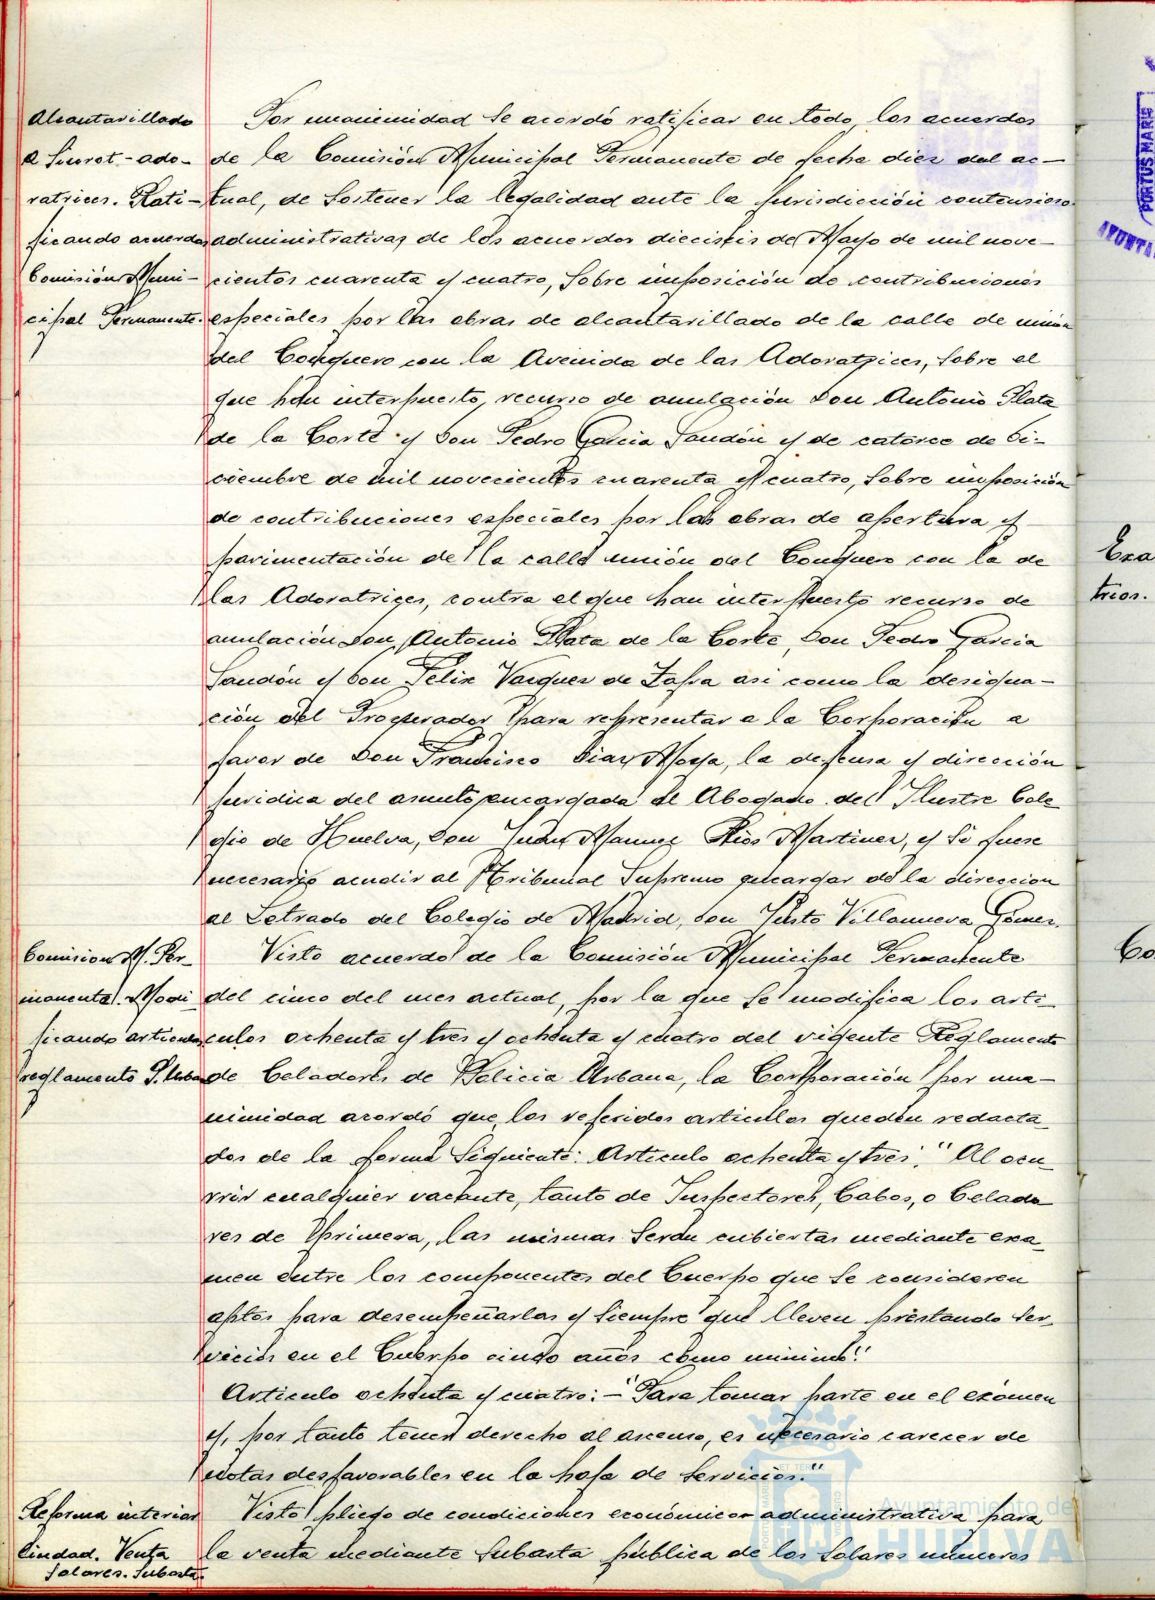 Alcantarillado
a Sicrot.-ado-
ratrices. Rati-
ficando acuerdos
Comisión Muni-
cipal Permanente.
Por unanimidad se acordó ratificar en todo, los acuerdos
de la Comisión Municipal Permanente de fecha diez del ac-
tual, de sostener la legalidad ante la jurisdicción contencioso
administrativas de los acuerdos dieciseis de Mayo de mil nove-
cientos cuarenta y cuatro, sobre imposición de contribuciones
especiales por las obras de alcantarillado de la calle de unión
del Conquero con la Avenida de las Adoratrices, sobre el
que han interpuesto, recurso de anulación Don Antonio Plata
de la Corte y Don Pedro Garcia Sandón y de catorce de Di-
ciembre de mil novecientos cuarenta y cuatro, sobre imposición
de contribuciones especiales por las obras de apertura y
pavimentación de la calle unión del Conquero con la de
las Adoratrices, contra el que han interpuesto recurso de
anulación Don, Antonio Plata de la Corte, Don Pedro Garcia
Sandón y Don Felix Vazquez de Zafra asi como la designa-
ción del Procurador para representar a la Corporación a
favor de Don Francisco Diaz Moya, la defensa y dirección
juridica del asunto, encargada al Abogado del Ilustre Cole
gio de Huelva, Don Juan Manuel Rios Martinez, y si fuese
necesario acudir al Tribunal Supremo encargar de la direccion
al Letrado del Colegio de Madrid, Don Justo Villanueva Gomez.
Comision M. Per-
manente. Modi-
ficando articulos
reglamento P. Urbana
Visto acuerdo de la Comisión Municipal Permanente
del cinco del mes actual, por la que se modifica los arti-
culos ochenta y tres y ochenta y cuatro del vigente Reglamento
de Celadores de Policia Urbana, la Corporación por una-
nimidad acordó que, los referidos articulos queden redacta
dos de la forma siguiente: Articulo ochenta y tres: "Al ocu
rrir cualquier vacante, tanto de Inspectores, Cabos, o Celado
res de Primera, las mismas serán cubiertas mediante exa_
men entre los componentes del Cuerpo que se consideren
aptos para desempeñarlas y siempre que lleven prestando ser_
vicios en el Cuerpo cinco años como minimo".
Articulo ochenta y cuatro: - "Para tomar parte en el exámen
y, por tanto tener derecho al ascenso, es necesario carecer de
notas desfavorables en la hoja de servicios."
Reforma interior
Ciudad. Venta
solares. Subasta.
Visto pliego de condiciones económico-administrativa para
la venta mediante subasta pública de los solares numeros
Exa
trios.
Co
PORTUS MARIS
AYUNTA
Ayuntamiento de
HUELVA